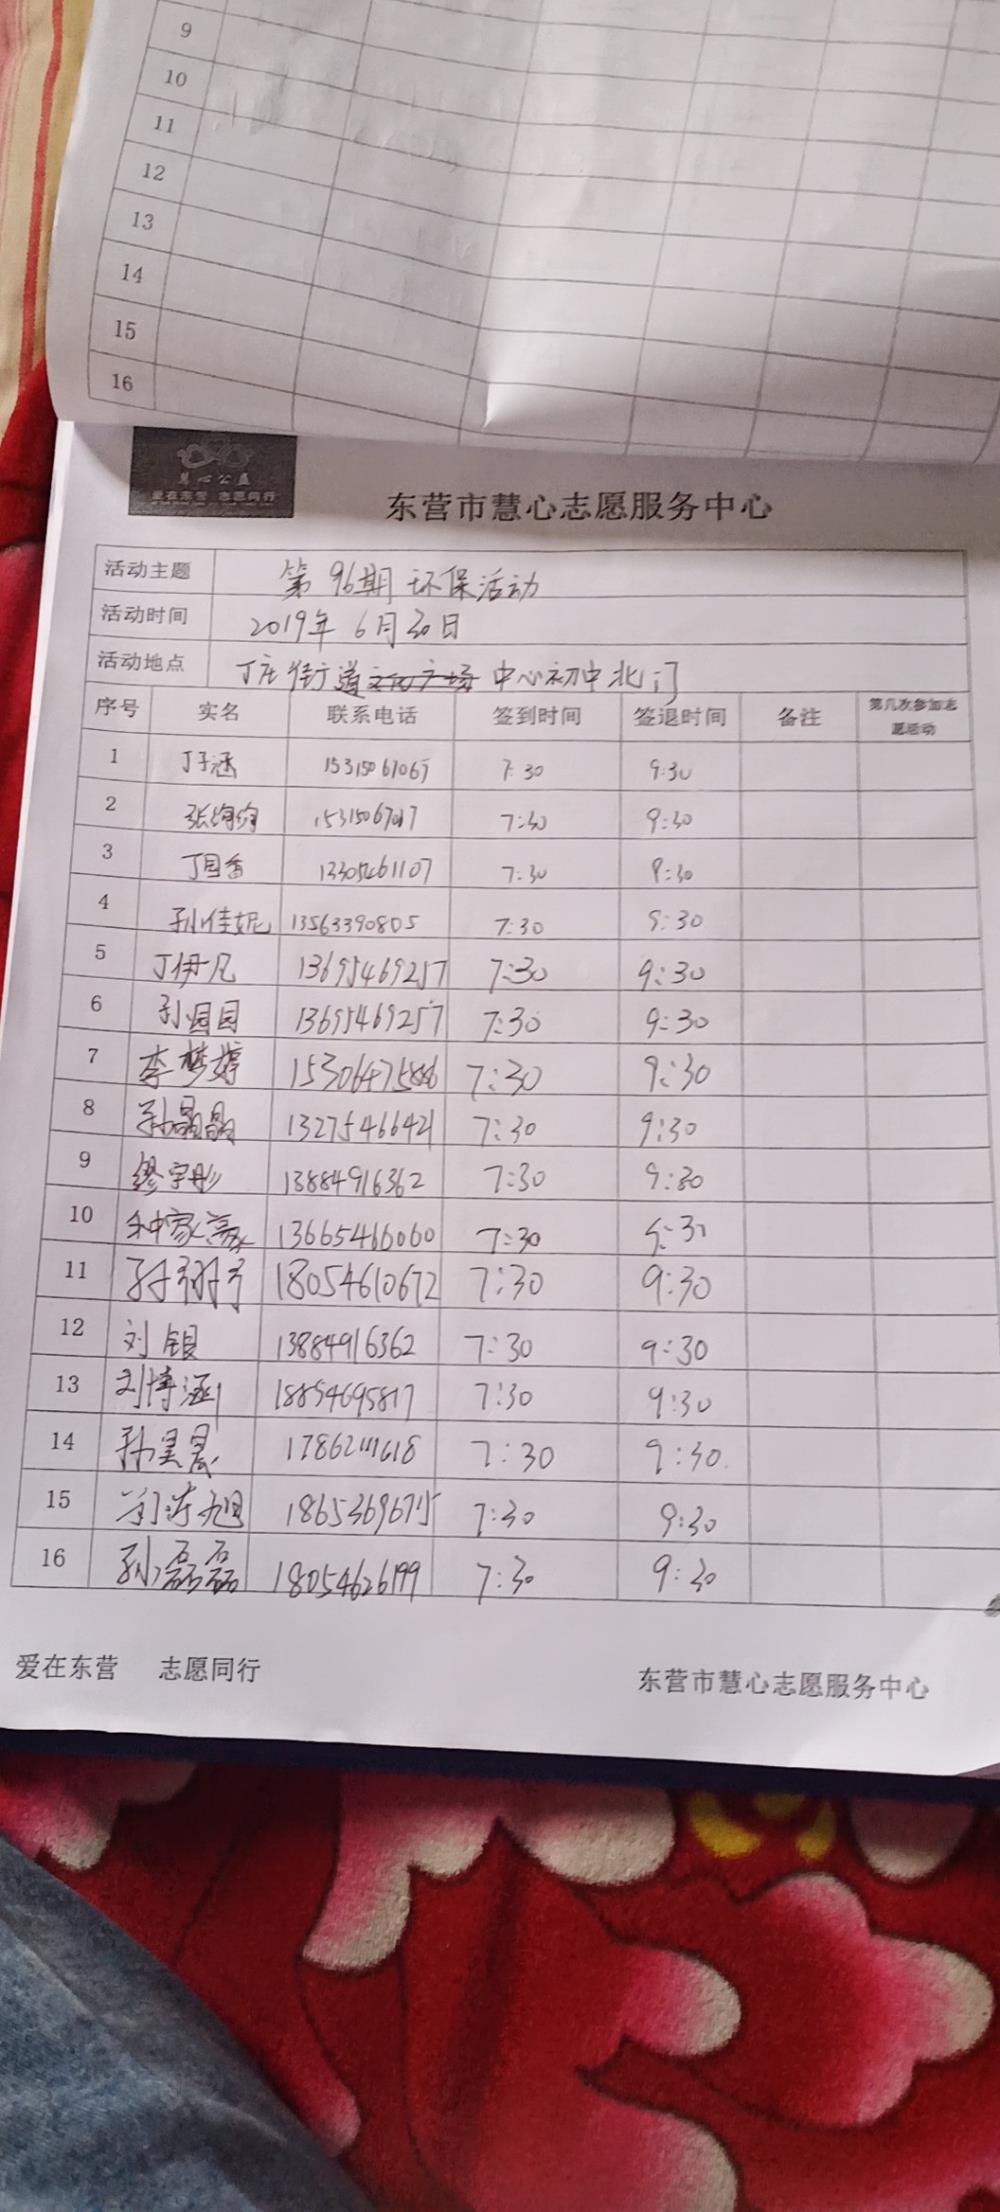 9
10
11
12
13
14
15
16
慧心公益
爱在东营 志愿同行
东营市慧心志愿服务中心
活动主题 第96期环保活动
活动时间 2019年6月30日
活动地点 丁庄街道文化广场中心初中北门
序号 实名 联系电话 签到时间 签退时间 备注 第几次参加志愿活动
1 丁子涵 15315061065 7:30 9:30
2 张绚绚 15315067017 7:30 9:30
3 丁国香 13305461107 7:30 9:30
4 孙佳妮 13563390805 7:30 9:30
5 丁伊凡 13695469257 7:30 9:30
6 孙园园 13695469257 7:30 9:30
7 李梦婷 7:30 9:30
8 孙晶晶 13275466421 7:30 9:30
9 缪宇彤 13884916362 7:30 9:30
10 13665466060 7:30 9:30
11 18054610672 7:30 9:30
12 刘银 13884916362 7:30 9:30
13 刘博涵 18854695817 7:30 9:30
14 孙昊晨 7:30 9:30
15 18653696715 7:30 9:30
16 孙磊磊 18054626199 7:30 9:30
爱在东营 志愿同行 东营市慧心志愿服务中心